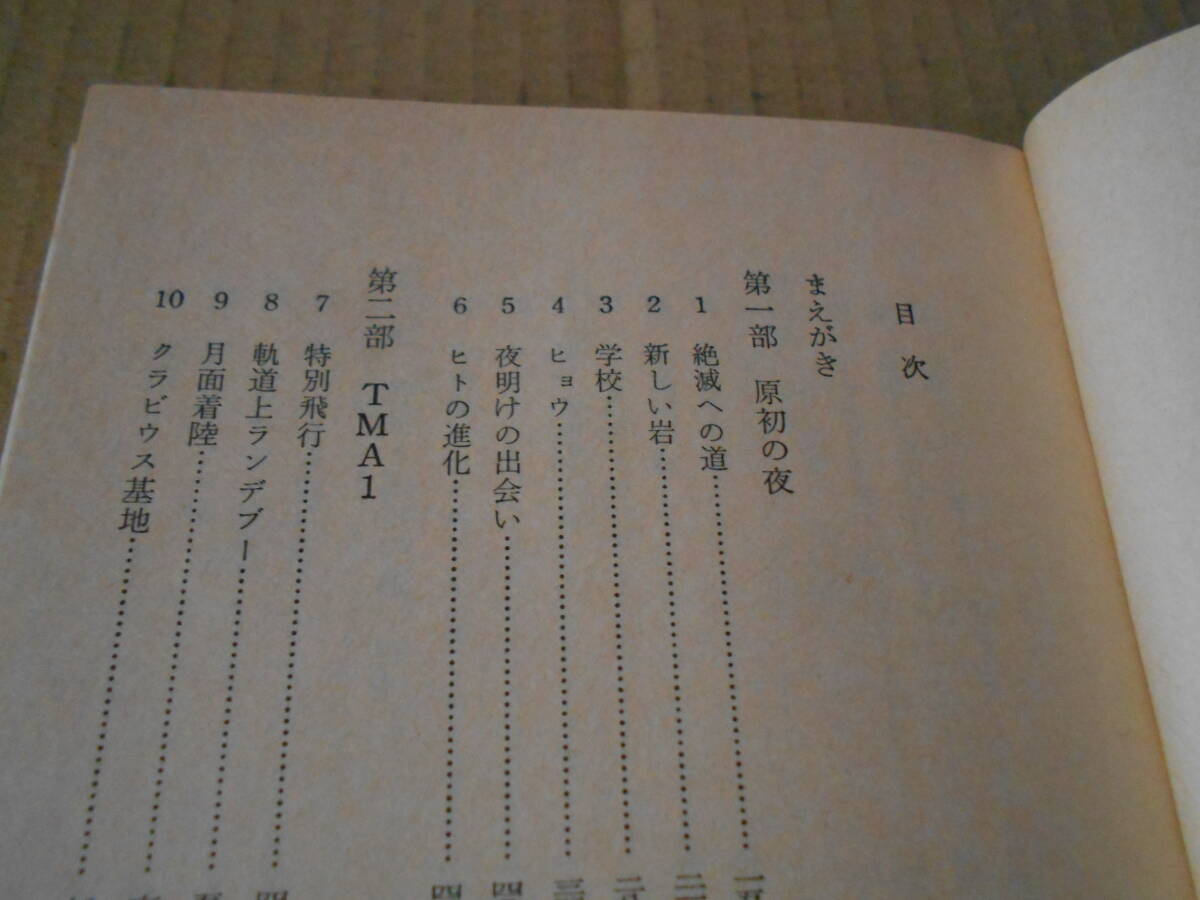 目次
まえがき
第一部 原初の夜
1 絶滅への道……………………一五
2 新しい岩……………………
3 学校……………………
4 ヒョウ……………………
5 夜明けの出会い……………………
6 ヒトの進化……………………
第二部 TMA1
7 特別飛行……………………
8 軌道上ランデブー……………………
9 月面着陸……………………
10 クラビウス基地……………………